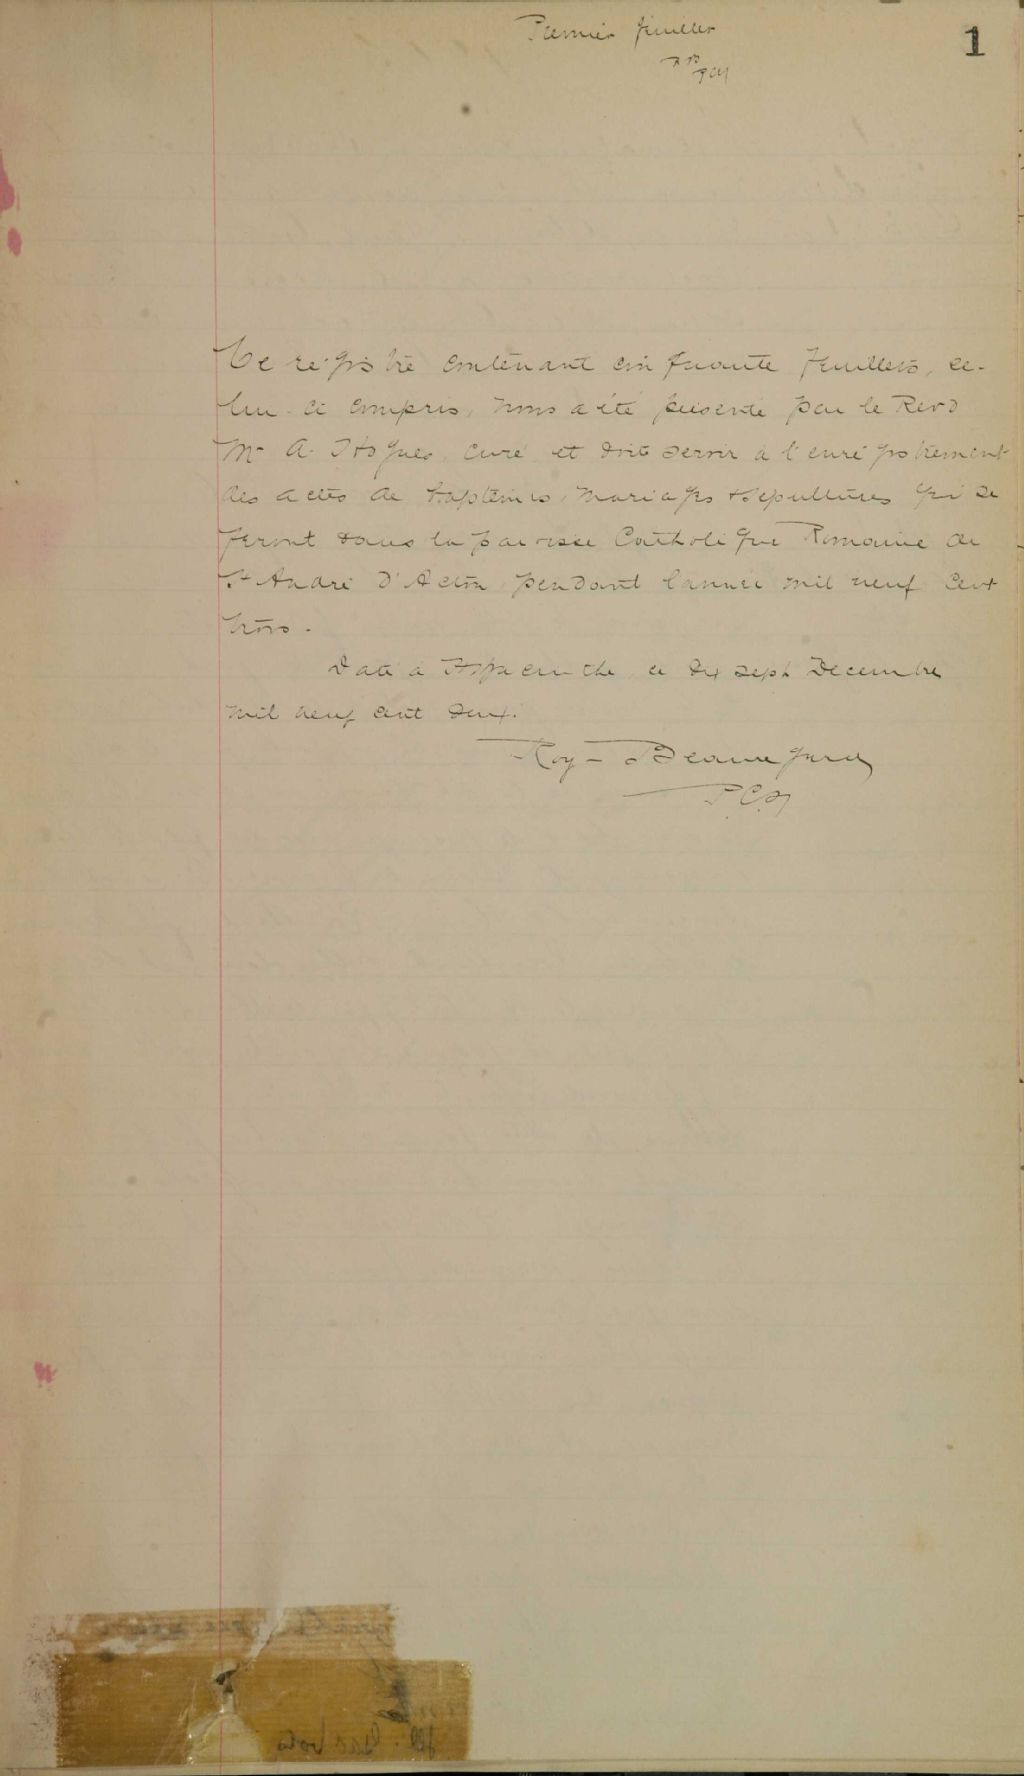 Premier feuillet
1
R B
PCM
Ce régistre contenant cinquante feuillets, ce-
lui-ci compris, nous a été présenté par le Revd
Mr A. Hogues, curé et doit servir à l'enrégistrement
des actes de baptêmes, mariages & sépultures qui se
feront dans la paroisse Catholique Romaine de
St André D'Acton, pendant l'année mil neuf cent
trois.
Daté à St Hyacinthe, ce dix sept Décembre
mil neuf cent deux.
Roy-Beauregard